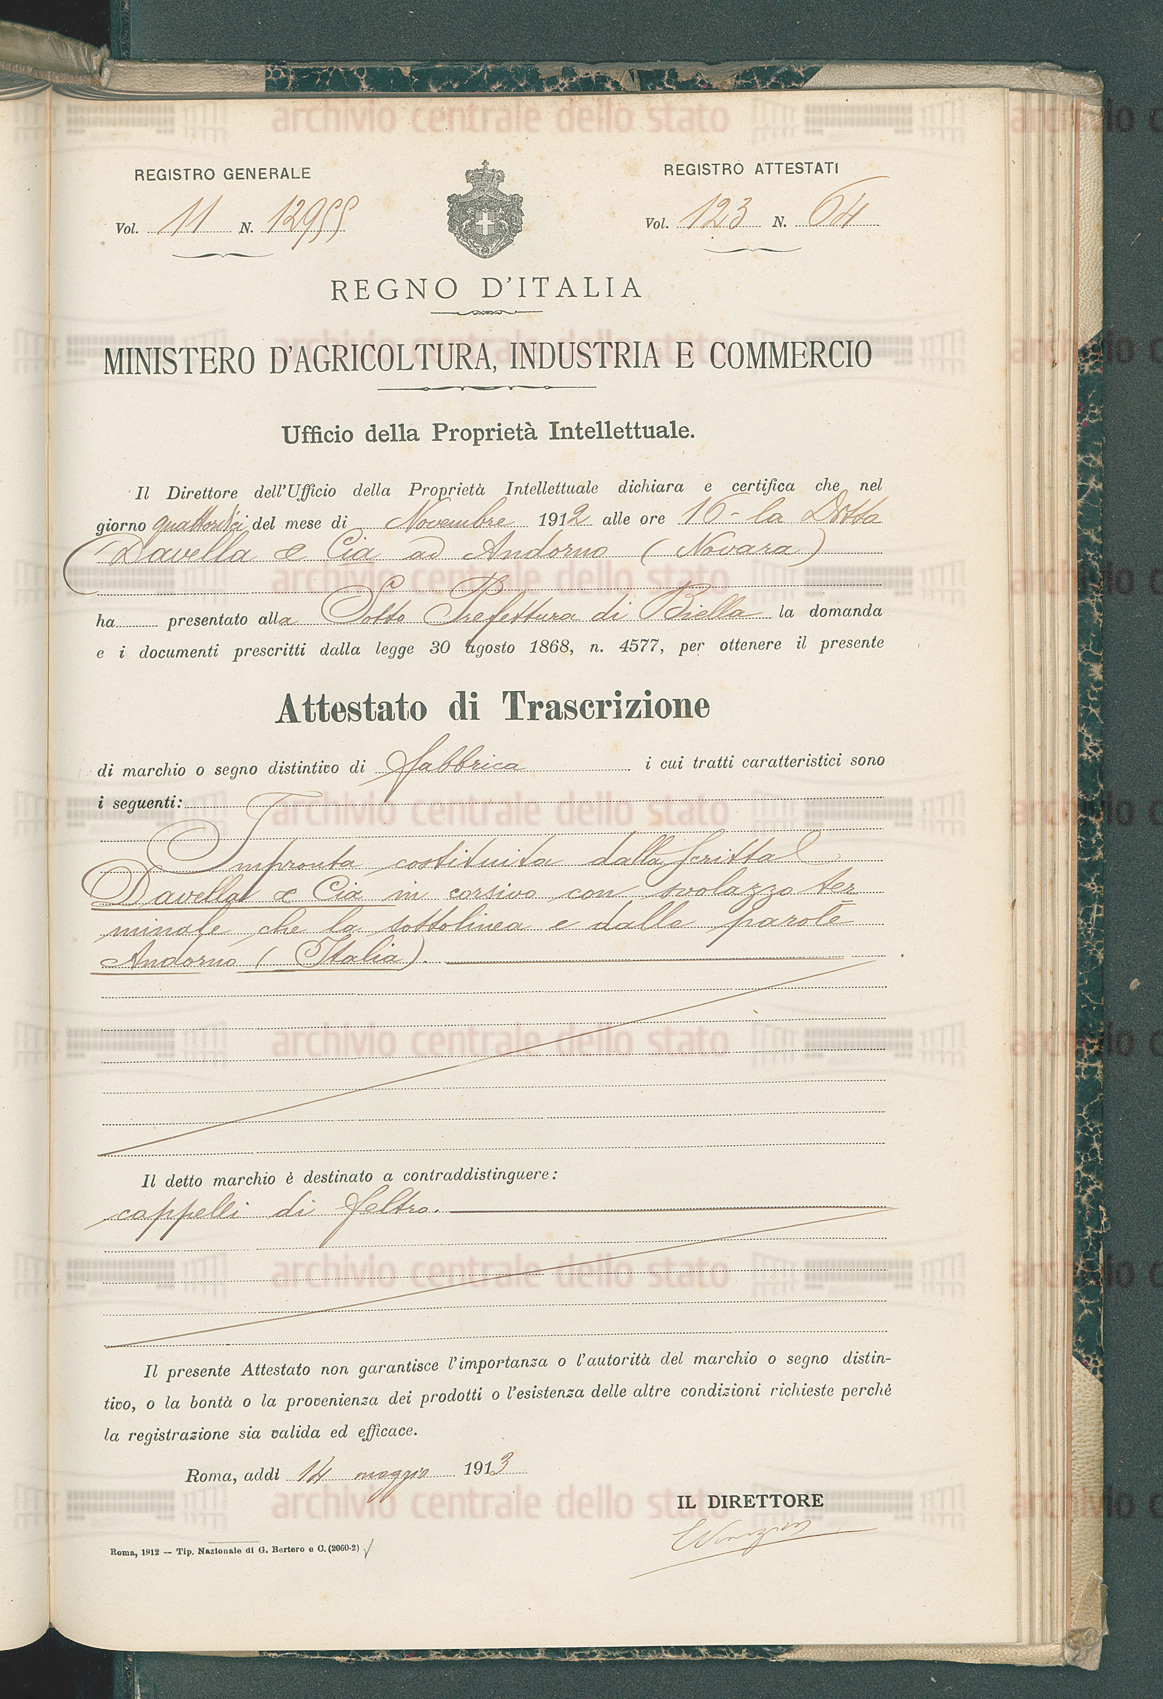 REGISTRO GENERALE
Vol. 11 N. 12955
REGISTRO ATTESTATI
Vol. 123 N. 64
REGNO D'ITALIA
MINISTERO D'AGRICOLTURA, INDUSTRIA E COMMERCIO
Ufficio della Proprietà Intellettuale.
Il Direttore dell'Ufficio della Proprietà Intellettuale dichiara e certifica che nel
giorno quattordici del mese di Novembre 1912 alle ore 16 - la Ditta
Davella e Cia ad Andorno (Novara)
ha presentato alla Sotto Prefettura di Biella la domanda
e i documenti prescritti dalla legge 30 agosto 1868, n. 4577, per ottenere il presente
Attestato di Trascrizione
di marchio o segno distintivo di fabbrica i cui tratti caratteristici sono
i seguenti:
Impronta costituita dalla scritta
Davella e Cia in corsivo con svolazzo ter
minale che la sottolinea e dalle parole
Andorno (Italia).
Il detto marchio è destinato a contraddistinguere:
cappelli di feltro.
Il presente Attestato non garantisce l'importanza o l'autorità del marchio o segno distin-
tivo, o la bontà o la provenienza dei prodotti o l'esistenza delle altre condizioni richieste perchè
la registrazione sia valida ed efficace.
Roma, addì 14 maggio 1913
IL DIRETTORE
Roma, 1912 — Tip. Nazionale di G. Bertero e C. (2060-2)
archivio centrale dello stato